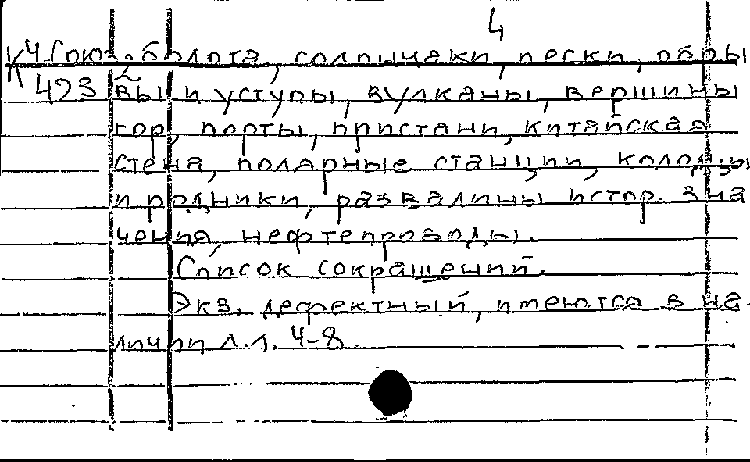 4
К 4 Союз. болота, солончаки, пески, обры
493 вы и уступы, вулканы, вершины
гор, порты, пристани, китайская
стена, полярные станции, колодцы
и родники, развалины истор. зна
чения, нефтепроводы.
Список сокращений.
Экз. дефектный, имеются в на-
личии л.л. 4-8.